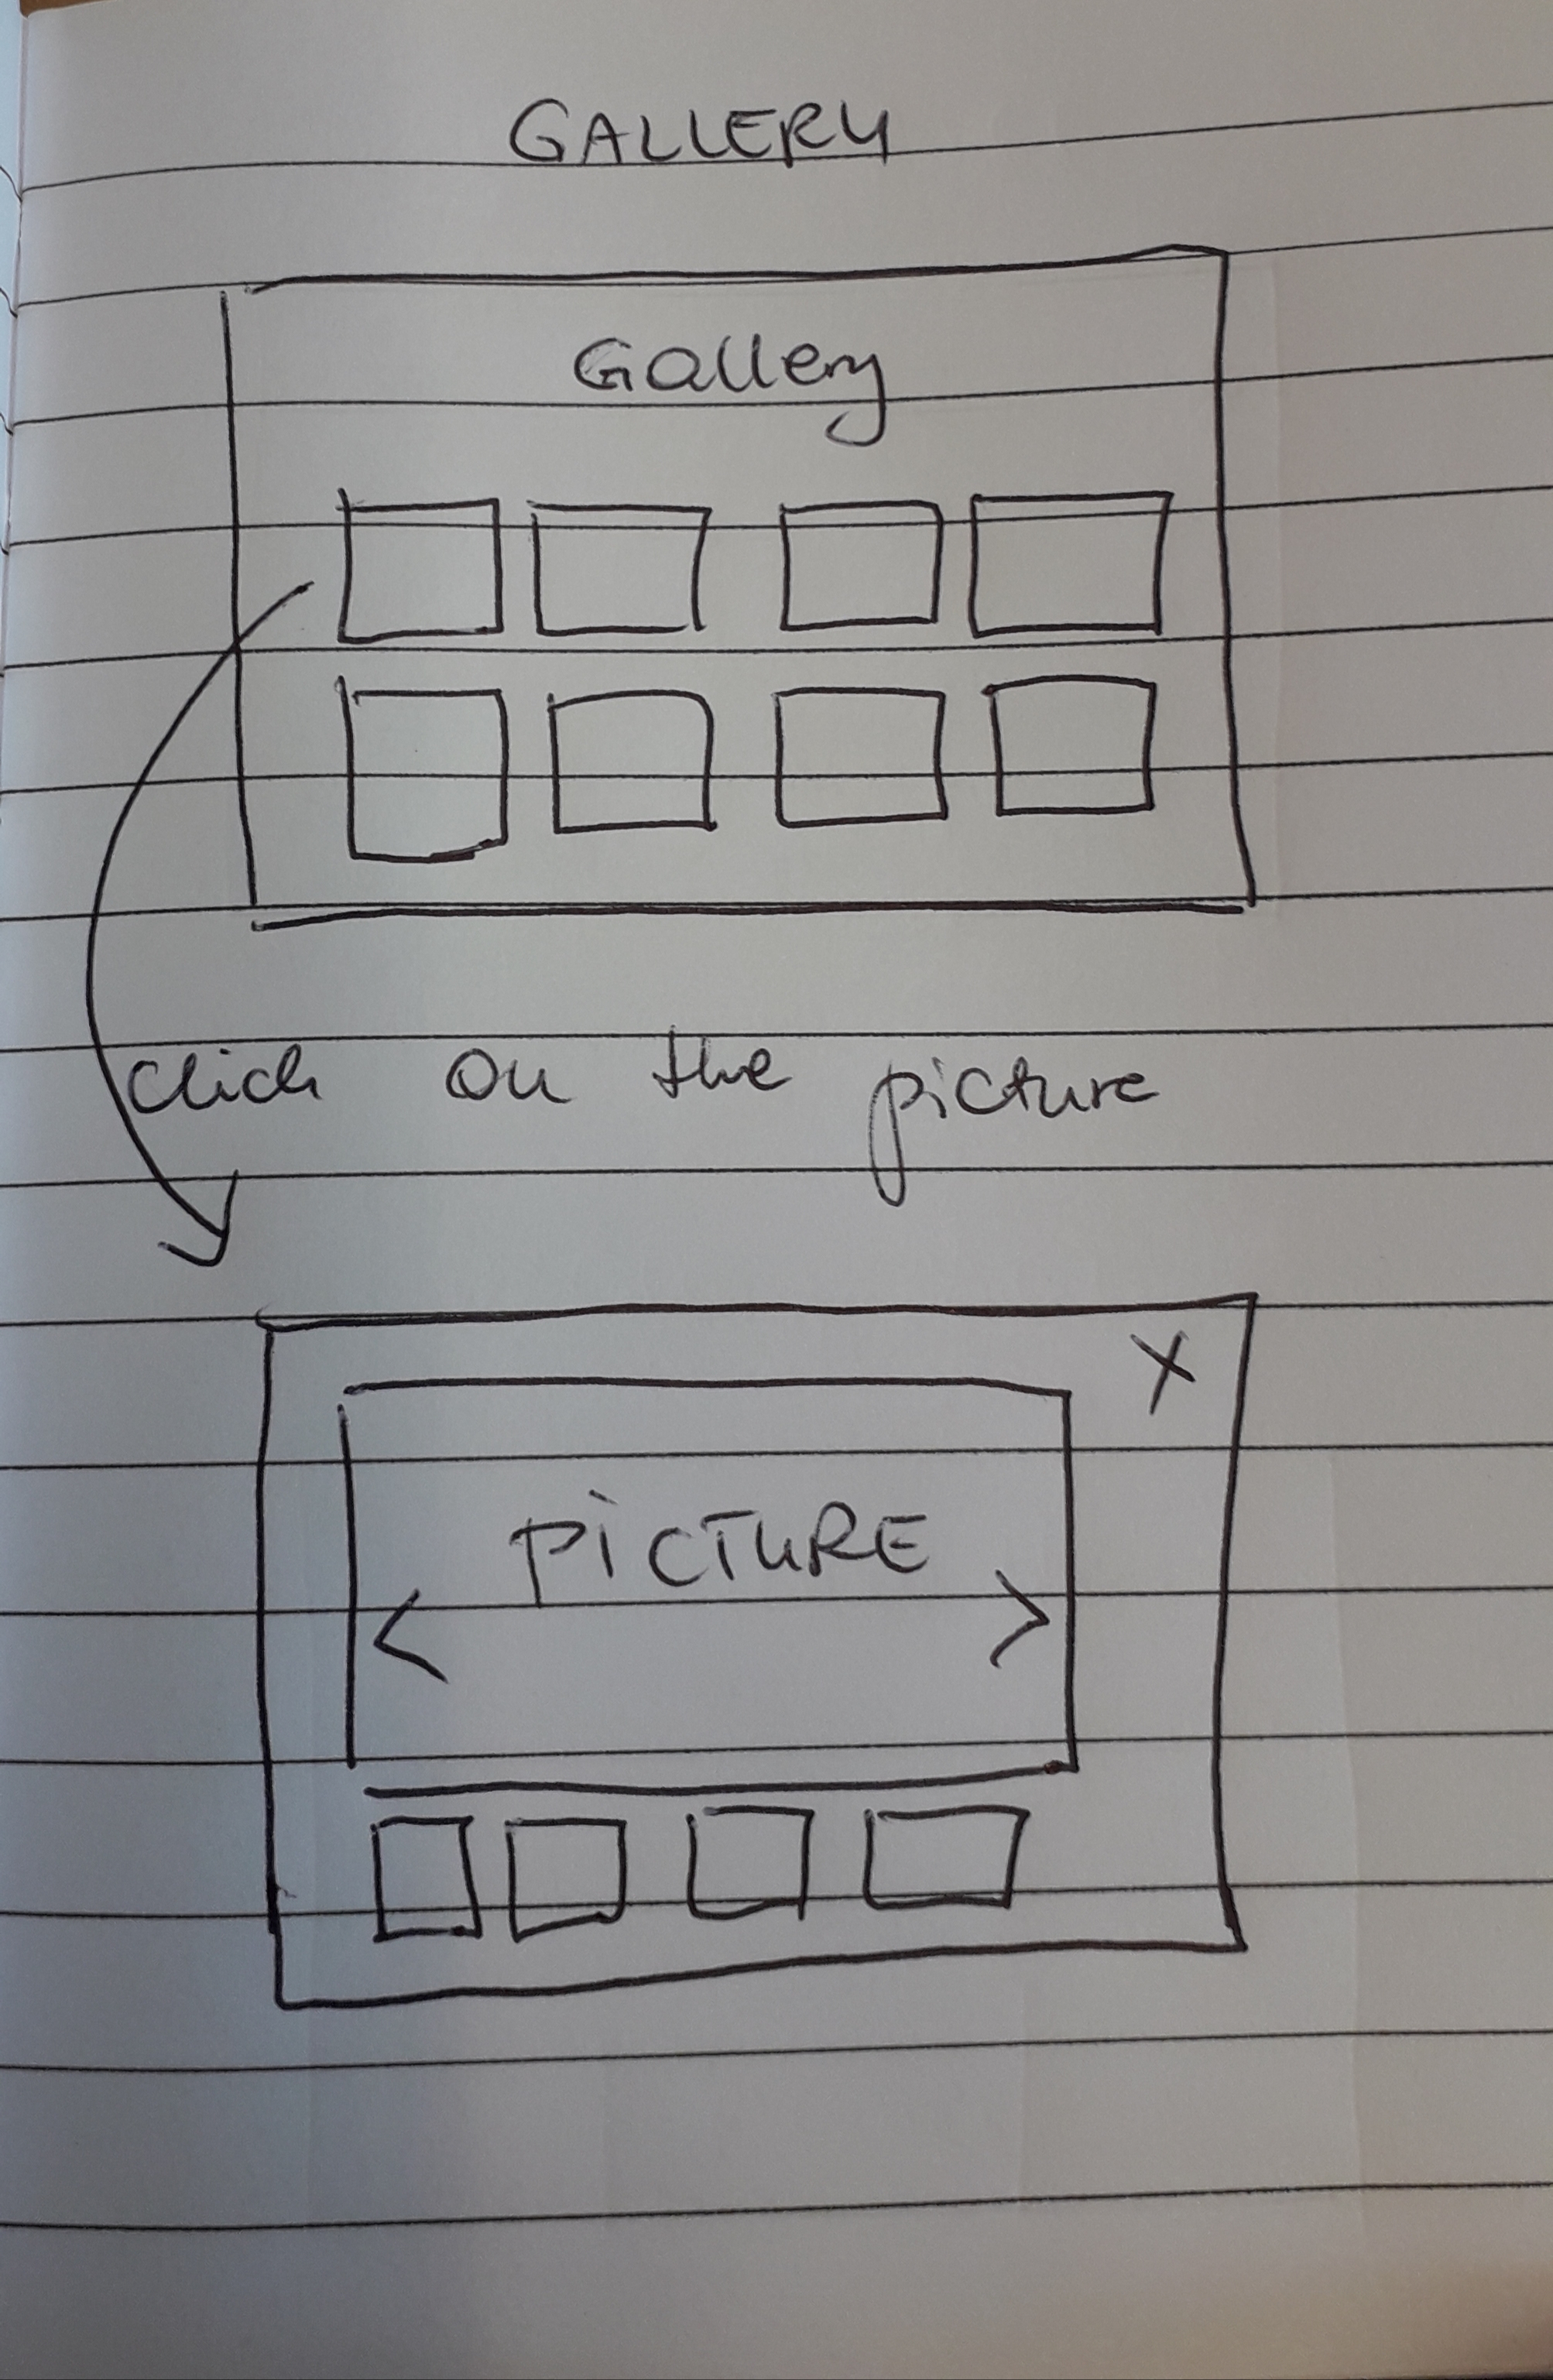 GALLERY
Gallery
click on the picture
X
PiCTURE
< >